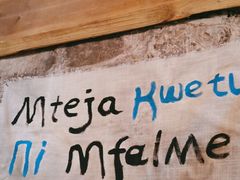 Mteja Kwetu
Ni Mfalme